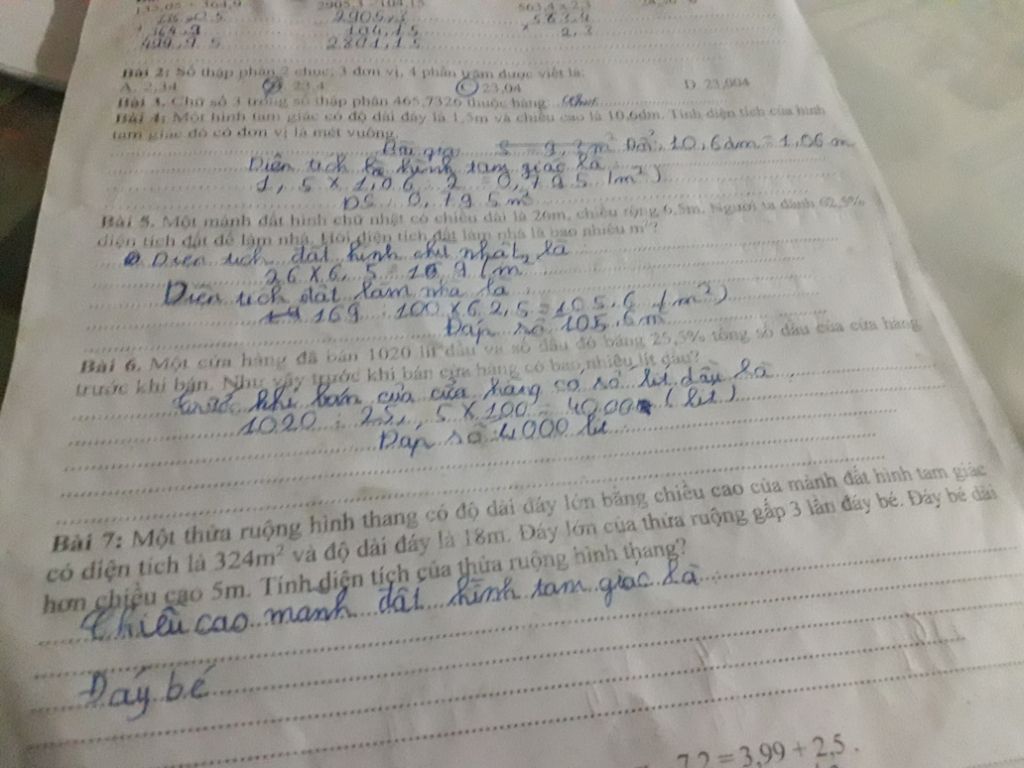 2905,3 - 104,15
563,4 x 2,3
2905,3
563,4
164,9
104,15
2,3
499,95
2801,15
Bài 2: Số thập phân 2 chục, 3 đơn vị, 4 phần trăm được viết là:
A. 2,34 23,4 C 23,04 D. 23,004
Bài 3. Chữ số 3 trong số thập phân 465,7326 thuộc hàng
Bài 4: Một hình tam giác có độ dài đáy là 1,5m và chiều cao là 10,6dm. Tính diện tích của hình
tam giác đó có đơn vị là mét vuông.
Bài giải Đổi: 10,6dm = 1,06 m
Diện tích hình tam giác là
1,5 x 1,06 : 2 = 0,795 (m²)
ĐS: 0,795m²
Bài 5. Một mảnh đất hình chữ nhật có chiều dài là 26m, chiều rộng 6,5m. Người ta dành 62,5%
diện tích đất để làm nhà. Hỏi diện tích đất làm nhà là bao nhiêu m²?
Diện tích đất hình chữ nhật là
26 x 6,5 = 169 (m
Diện tích đất làm nhà là
169 : 100 x 62,5 = 105,6 (m²)
Đáp số 105,6 m
Bài 6. Một cửa hàng đã bán 1020 lít dầu và số dầu đó bằng 25,5% tổng số dầu của cửa hàng
trước khi bán. Như vậy trước khi bán cửa hàng có bao nhiêu lít dầu?
trước khi bán của cửa hàng có số lít dầu là
1020 : 25,5 x 100 = 4000 (lít)
Đáp số 4000 lít
Bài 7: Một thửa ruộng hình thang có độ dài đáy lớn bằng chiều cao của mảnh đất hình tam giác
có diện tích là 324m² và độ dài đáy là 18m. Đáy lớn của thửa ruộng gấp 3 lần đáy bé. Đáy bé dài
hơn chiều cao 5m. Tính diện tích của thửa ruộng hình thang?
Chiều cao mảnh đất hình tam giác là
Đáy bé
7,2 = 3,99 + 2,5 .